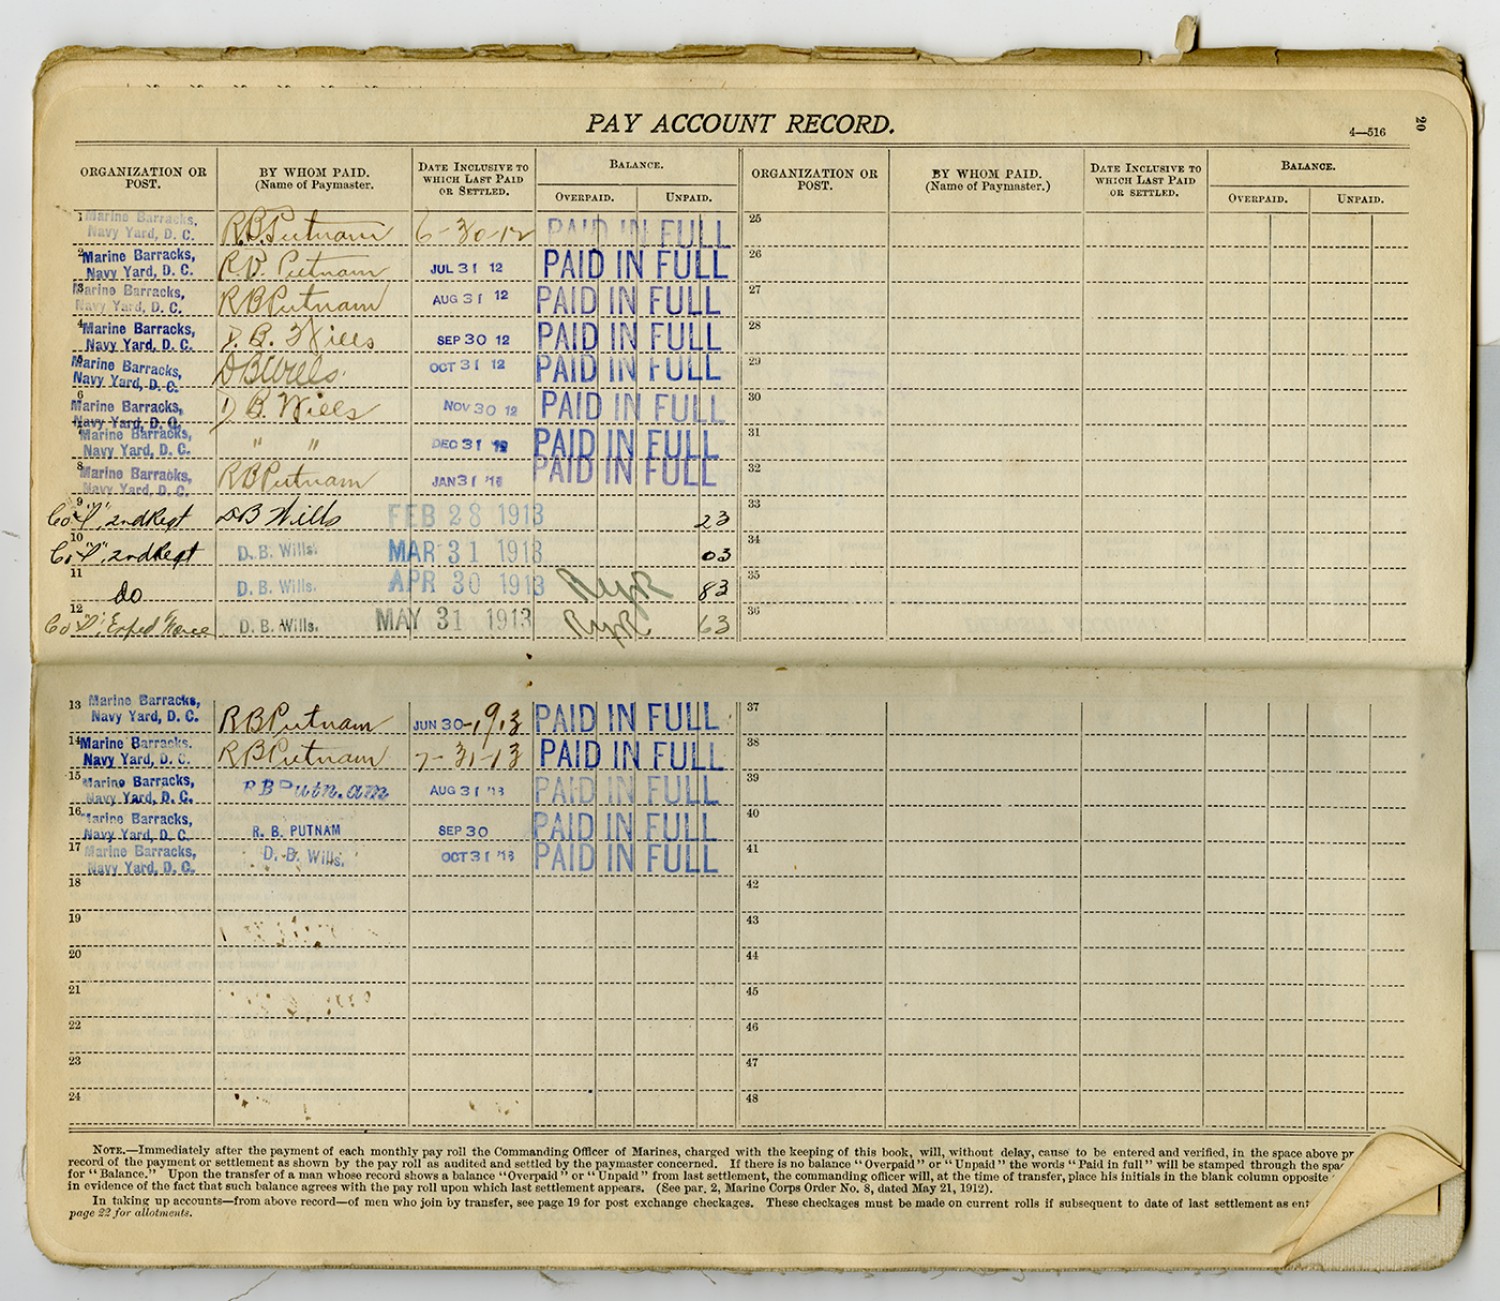 PAY ACCOUNT RECORD.
4—516
20
ORGANIZATION OR POST.
BY WHOM PAID. (Name of Paymaster.
DATE INCLUSIVE TO WHICH LAST PAID OR SETTLED.
BALANCE.
OVERPAID.
UNPAID.
ORGANIZATION OR POST.
BY WHOM PAID. (Name of Paymaster.)
DATE INCLUSIVE TO WHICH LAST PAID OR SETTLED.
BALANCE.
OVERPAID.
UNPAID.
1 Marine Barracks, Navy Yard, D. C. R.B. Putnam 6-30-12 PAID IN FULL 25
2 Marine Barracks, Navy Yard, D. C. R.B. Putnam JUL 31 12 PAID IN FULL 26
3 Marine Barracks, Navy Yard, D. C. RBPutnam AUG 31 12 PAID IN FULL 27
4 Marine Barracks, Navy Yard, D. C. D. B. Wills SEP 30 12 PAID IN FULL 28
5 Marine Barracks, Navy Yard, D. C. DBWills. OCT 31 12 PAID IN FULL 29
6 Marine Barracks, Navy Yard, D. C. D. B. Wills NOV 30 12 PAID IN FULL 30
7 Marine Barracks, Navy Yard, D. C. " " DEC 31 12 PAID IN FULL 31
8 Marine Barracks, Navy Yard, D. C. RBPutnam JAN 31 '13 PAID IN FULL 32
9 Co 2nd Regt DB Wills FEB 28 1913 23 33
10 Co 2nd Regt D. B. Wills. MAR 31 1913 03 34
11 do D. B. Wills. APR 30 1913 83 35
12 Co Exped Force D. B. Wills. MAY 31 1913 63 36
13 Marine Barracks, Navy Yard, D. C. RBPutnam JUN 30-1913 PAID IN FULL 37
14 Marine Barracks, Navy Yard, D. C. RBPutnam 7-31-13 PAID IN FULL 38
15 Marine Barracks, Navy Yard, D. C. RBPutnam AUG 31 '13 PAID IN FULL 39
16 Marine Barracks, Navy Yard, D. C. R. B. PUTNAM SEP 30 PAID IN FULL 40
17 Marine Barracks, Navy Yard, D. C. D. B. Wills. OCT 31 '13 PAID IN FULL 41
18 42
19 43
20 44
21 45
22 46
23 47
24 48
NOTE.—Immediately after the payment of each monthly pay roll the Commanding Officer of Marines, charged with the keeping of this book, will, without delay, cause to be entered and verified, in the space above
record of the payment or settlement as shown by the pay roll as audited and settled by the paymaster concerned. If there is no balance "Overpaid" or "Unpaid" the words "Paid in full" will be stamped through the
for "Balance." Upon the transfer of a man whose record shows a balance "Overpaid" or "Unpaid" from last settlement, the commanding officer will, at the time of transfer, place his initials in the blank column opposite
in evidence of the fact that such balance agrees with the pay roll upon which last settlement appears. (See par. 2, Marine Corps Order No. 8, dated May 21, 1912).
In taking up accounts—from above record—of men who join by transfer, see page 19 for post exchange checkages. These checkages must be made on current rolls if subsequent to date of last settlement as
page 22 for allotments.